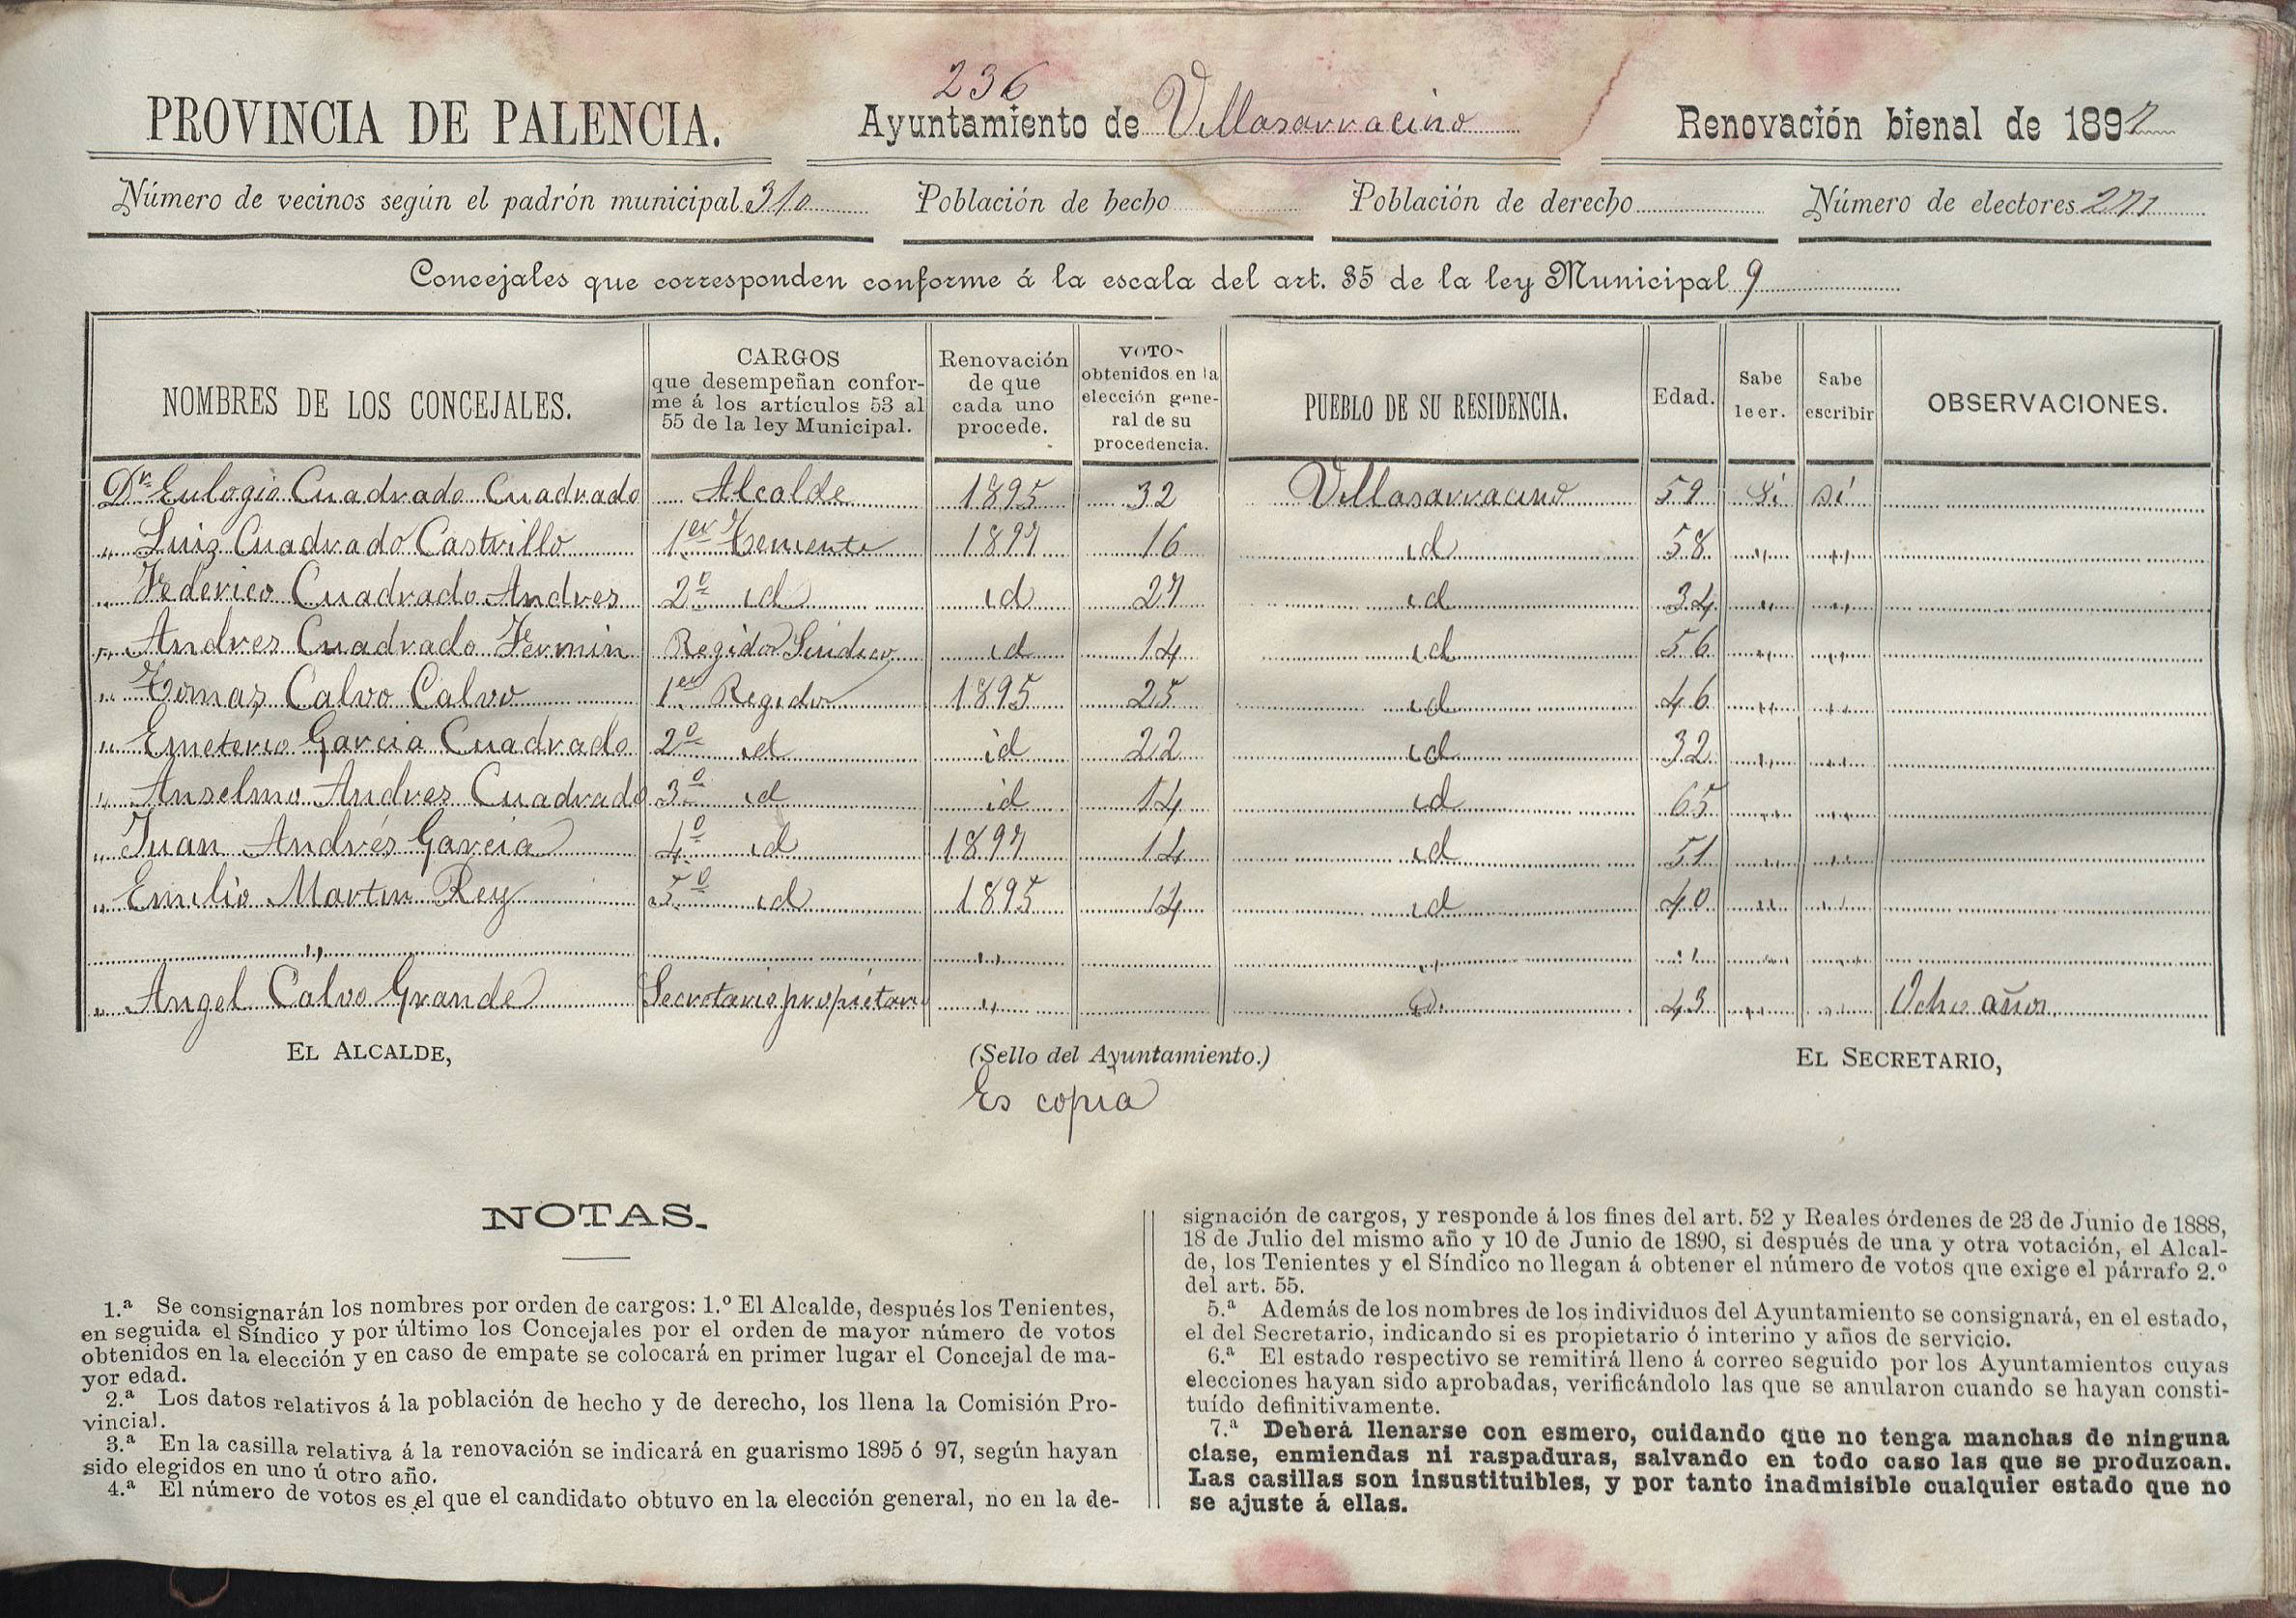 236
PROVINCIA DE PALENCIA. Ayuntamiento de Villasarracino Renovación bienal de 1897
Número de vecinos según el padrón municipal 310 Población de hecho Población de derecho Número de electores 271
Concejales que corresponden conforme á la escala del art. 35 de la ley Municipal 9
NOMBRES DE LOS CONCEJALES. CARGOS que desempeñan conforme á los artículos 53 al 55 de la ley Municipal. Renovación de que cada uno procede. VOTO- obtenidos en la elección general de su procedencia. PUEBLO DE SU RESIDENCIA. Edad. Sabe leer. Sabe escribir OBSERVACIONES.
Dn Eulogio Cuadrado Cuadrado Alcalde 1895 32 Villasarracino 59 Si si
" Luiz Cuadrado Castrillo 1er Teniente 1897 16 id 58 " "
" Federico Cuadrado Andres 2º id id 27 id 34 " "
" Andres Cuadrado Fermin Regidor Sindico id 14 id 56 " "
" Tomas Calvo Calvo 1er Regidor 1895 25 id 46 " "
" Emeterio Garcia Cuadrado 2º id id 22 id 32 " "
" Anselmo Andres Cuadrado 3º id id 14 id 65 " "
" Juan Andrés Garcia 4º id 1897 14 id 51 " "
" Emilio Martin Rey 5º id 1895 14 id 40 " "
" " " " " "
" Angel Calvo Grande Secretario propietario " id 43 " " Ocho años
EL ALCALDE, (Sello del Ayuntamiento.) EL SECRETARIO,
Es copia
NOTAS.
1.ª Se consignarán los nombres por orden de cargos: 1.º El Alcalde, después los Tenientes,
en seguida el Síndico y por último los Concejales por el orden de mayor número de votos
obtenidos en la elección y en caso de empate se colocará en primer lugar el Concejal de ma-
yor edad.
2.ª Los datos relativos á la población de hecho y de derecho, los llena la Comisión Pro-
vincial.
3.ª En la casilla relativa á la renovación se indicará en guarismo 1895 ó 97, según hayan
sido elegidos en uno ú otro año.
4.ª El número de votos es el que el candidato obtuvo en la elección general, no en la de-
signación de cargos, y responde á los fines del art. 52 y Reales órdenes de 23 de Junio de 1888,
18 de Julio del mismo año y 10 de Junio de 1890, si después de una y otra votación, el Alcal-
de, los Tenientes y el Síndico no llegan á obtener el número de votos que exige el párrafo 2.º
del art. 55.
5.ª Además de los nombres de los individuos del Ayuntamiento se consignará, en el estado,
el del Secretario, indicando si es propietario ó interino y años de servicio.
6.ª El estado respectivo se remitirá lleno á correo seguido por los Ayuntamientos cuyas
elecciones hayan sido aprobadas, verificándolo las que se anularon cuando se hayan consti-
tuído definitivamente.
7.ª Deberá llenarse con esmero, cuidando que no tenga manchas de ninguna
clase, enmiendas ni raspaduras, salvando en todo caso las que se produzcan.
Las casillas son insustituibles, y por tanto inadmisible cualquier estado que no
se ajuste á ellas.